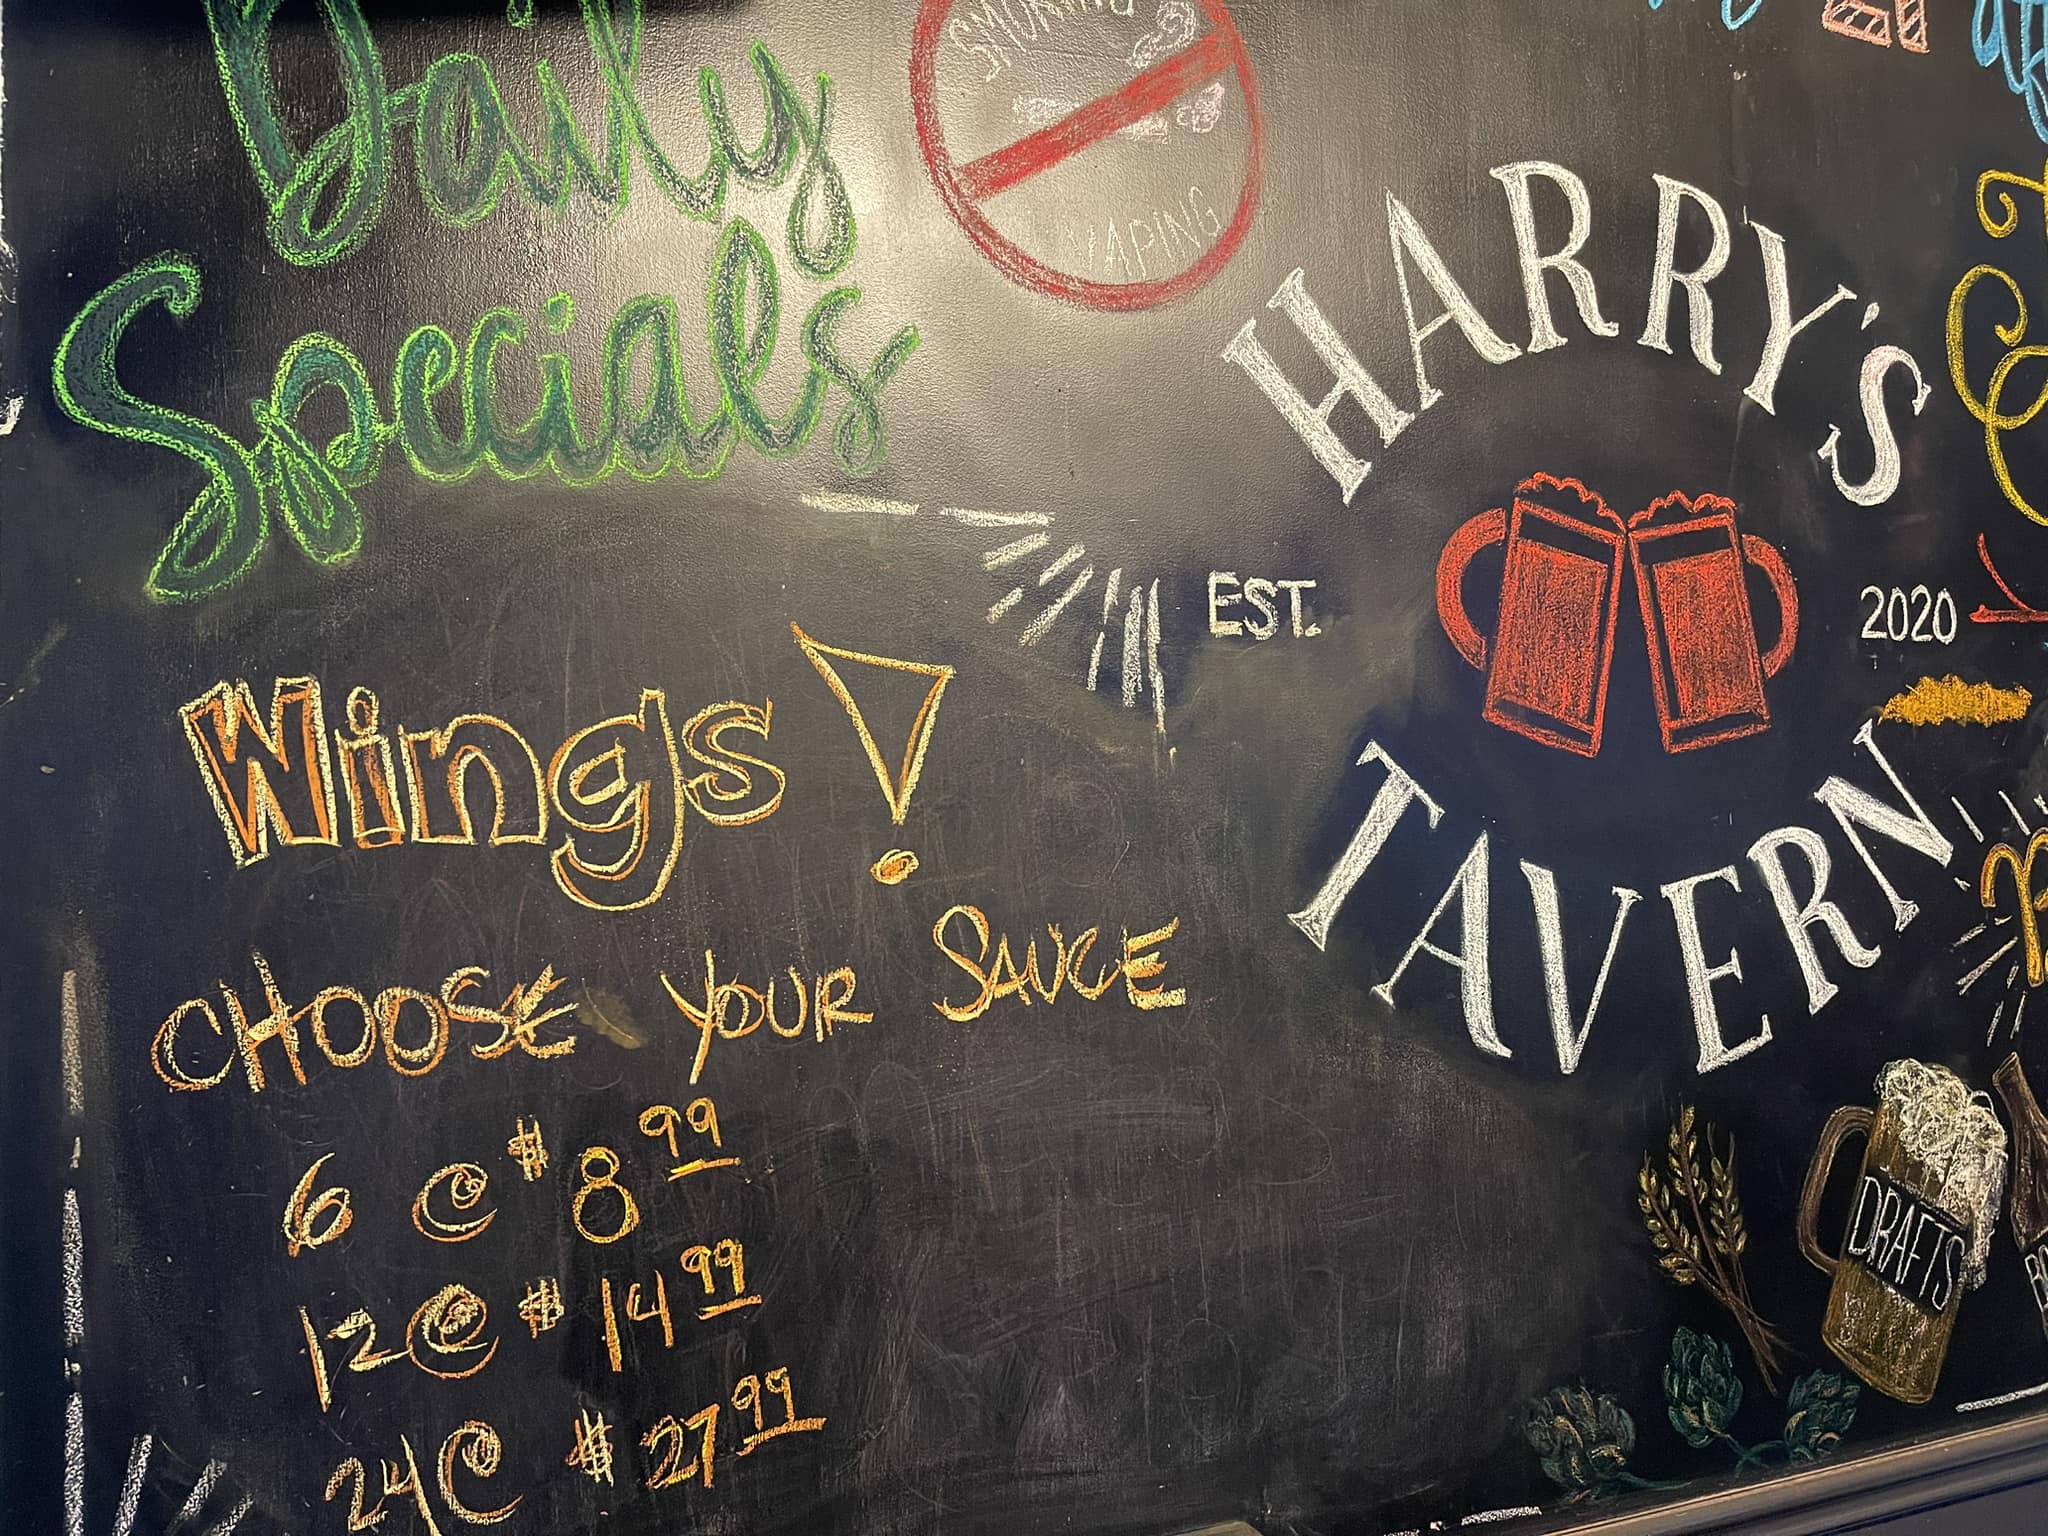 Daily
Specials
SMOKING
VAPING
HARRY'S
EST. 2020
TAVERN
Wings!
CHOOSE YOUR SAUCE
6 @ $8.99
12 @ $14.99
24 @ $27.99
DRAFTS